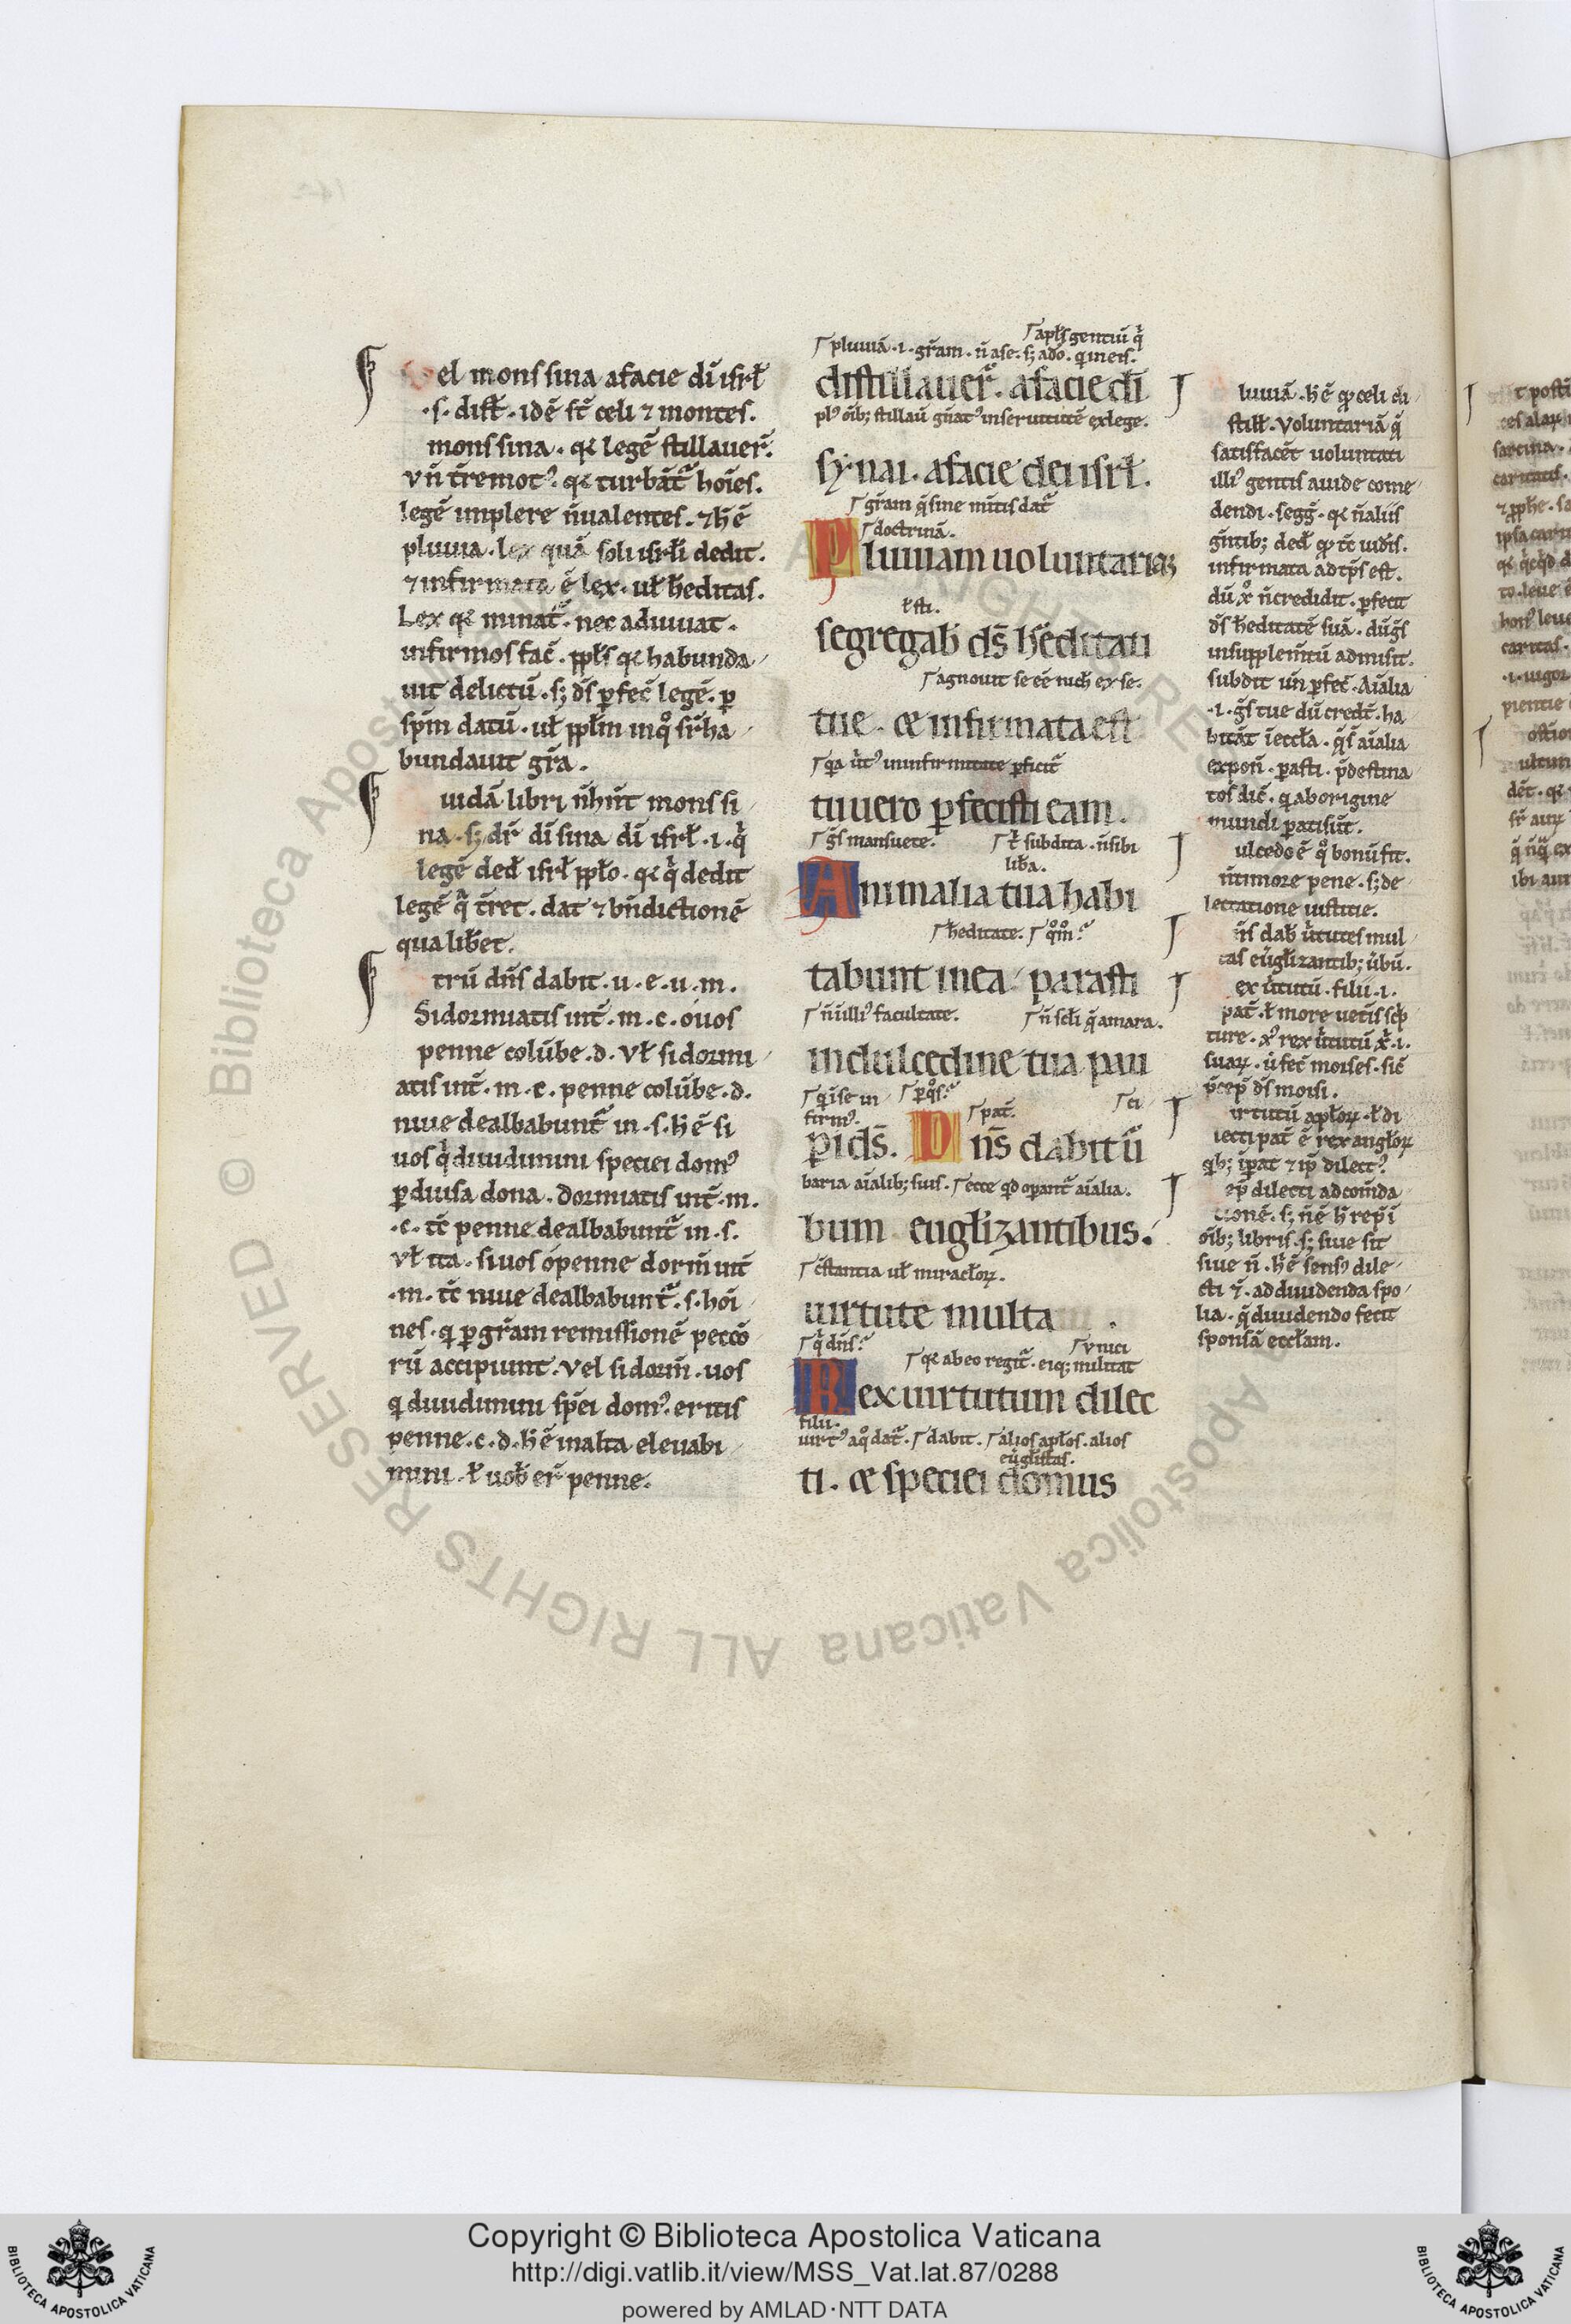 Vel mons sina a facie dı̄ isrł
·s· distł· idē sc̄ celi ⁊ montes.
mons sina · qꝛ legē stillauer̄.
vn̄ tr̄remotꝰ· qꝛ turbāt᷑ hoīes.
legē implere n̄ ualentes· ⁊ h̄ ē
pluuia · lex quā soli isrłi dedit.
⁊ infirmata ē lex· uł h̄editas.
Lex qꝛ minat᷑ · nec adiuuat.
infirmos fac̄ · ppłs qꝛ habunda
uit delictū · sꝫ ds̄ ꝑfec̄ legē · ꝑ
spm̄ datū · uł ppłm in qͦ sr̄ ha
bundauit gr̄a.
uidā libri n̄ hn̄t mons si
na · sꝫ dr̄ dı̄ sina dı̄ isrł ·i· qͥ
legē ded̄ isrł ppło · qꝛ qͥ dedit
legē qͣ tr̄ret · dat ⁊ bn̄dictionē
qua lib̄et.
trū dn̄s dabit · u · e · u · m ·
Si dormiatis int̄ · m · c · o uos
penne colūbe · d · Vł si dormi
atis int̄ · m · c · penne colūbe · d ·
niue dealbabunt᷑ in · s · h̄ ē si
uos qͥ diuidimini speciei domꝰ
ꝑ diuisa dona · dormiatis int̄ · m ·
· c · tc̄ penne dealbabunt᷑ in · s ·
Vł ita · si uos o penne dorm̄ int̄
· m · tc̄ niue dealbabunt᷑ · s · hoı̄
nes · qi ꝑ gr̄am remissionē peccō
rū accipiunt · Vel si dorm̄ · uos
qi diuidimini sp̄ei domꝰ · eritis
penne · c · d · h̄ ē in alta eleuabi
mini · ł uob̄ er̄ penne.
aplīs gentiū qͥ
pluuiā ·i· gr̄am · n̄ a se · sꝫ a do · qi in eis.
distillauer̄ · a facie dı̄
plꝰ oībꝫ stillau̅ gn̄atꝰ in seruitutē ex lege.
sẏnai · a facie dei isrł.
gr̄am q̄ sine m̄itis dat᷑
doctrinā.
Pluuiam uoluntariaꝫ
segregab̄ ds̄ h̄editati
agnouit se eē nich̄ ex se.
tue · ⁊ infirmata est
qa ūtꝰ in infirmitate ꝑficit᷑
tu uero ꝑfecisti eam.
gs̄ mansuete. subdita · n̄ sibi
lib̄a.
Animalia tua habi
h̄editate. qͦm̄
tabunt in ea · parasti
n̄ in illiꝰ facultate. n̄ scłi q̄ amara.
in dulcedine tua pau
qi in se in
firmꝰ. pat̄.
ꝑi ds̄. Dn̄s dabit ū
baria aīalibꝫ suis. ecce qd oꝑant᷑ aīalia.
bum euglizantibus.
c̄stantia uł miraclorꝝ.
uirtute multa.
qͥ dn̄s unici
qꝛ ab eo regit᷑ · eiqꝫ militat
Rex uirtutum dilec
filii.
uirtꝰ a qͦ dat᷑. dabit. alios aplos · alios
eūglistas.
ti · ⁊ speciei domus
luuiā · h̄ ē qͦ celi di
still̄ · Voluntariā q̄
satisfacēt uoluntati
illiꝰ gentis auide come
dendi · segg̅ · qꝛ n̄ aliis
gn̄tibꝫ ded̄ qͦ tc̄ uidīs.
infirmata ad tp̄s est.
dū xͦ n̄ credidit · ꝑfecit
ds̄ h̄editatē suā · dū gs̄
in supplem̄tū admisit.
subdit un̄ ꝑfec̄ · Aīalia
·i· gs̄ tue dū credt̄ · ha
bitāt ī eccła · q̄s aīalia
expon̄ · parasti · p̄destina
tos dic̄ · qi ab origine
mundi parati sūt.
ulcedo ē qͦ bonū fit.
n̄ timore pene · sꝫ de
lectatione iustitie.
n̄s dab̄ ūtutes mul
tas eūglizantibꝫ ūbū.
ex ūtutū · filii ·i·
pat̄ · ł more uet̄is scͥp
ture · xꝰ rex ūtutū xͥ ·i·
suarꝝ · ū fec̄ moises · sic̄
p̄cep̄ ds̄ moisi.
irtutū aplorꝝ · ł di
lecti pat̄ ē rex anglorꝝ
qibꝫ īpat ⁊ ip̄ dilectꝰ.
ep̄ dilecti ad com̄da
tionē · sꝫ n̄ ē h̄ rep̄ i
oībꝫ libris · sꝫ siue sit
siue n̄ · h̄ ē sensꝰ dile
cti · ad diuidenda spo
lia · q̄ diuidendo fecit
sponsā eccłam.
Copyright © Biblioteca Apostolica Vaticana
http://digi.vatlib.it/view/MSS_Vat.lat.87/0288
powered by AMLAD·NTT DATA
BIBLIOTECA APOSTOLICA VATICANA
BIBLIOTECA APOSTOLICA VATICANA
© Biblioteca Apostolica Vaticana ALL RIGHTS RESERVED